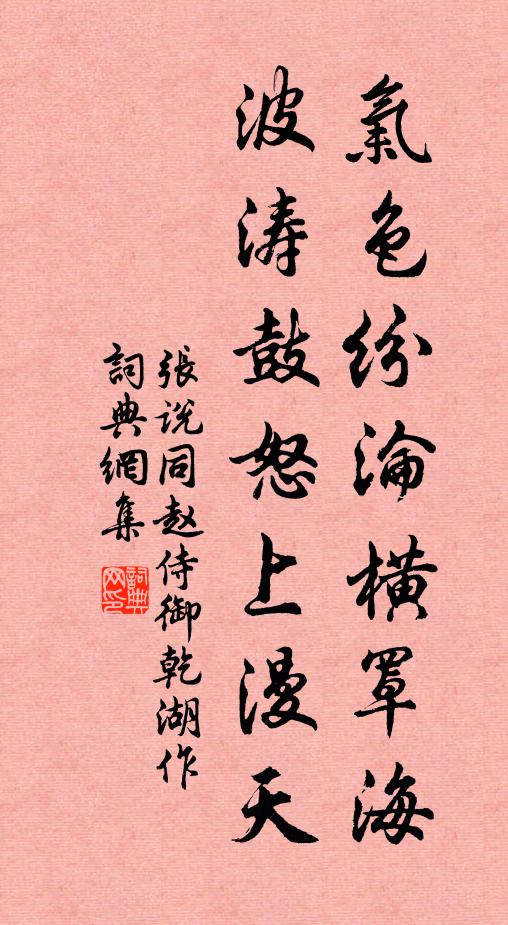 氣色紛淪橫罩海
波涛鼓怒上漫天
張说同赵侍御乾湖作
詞典網集
詞典网印